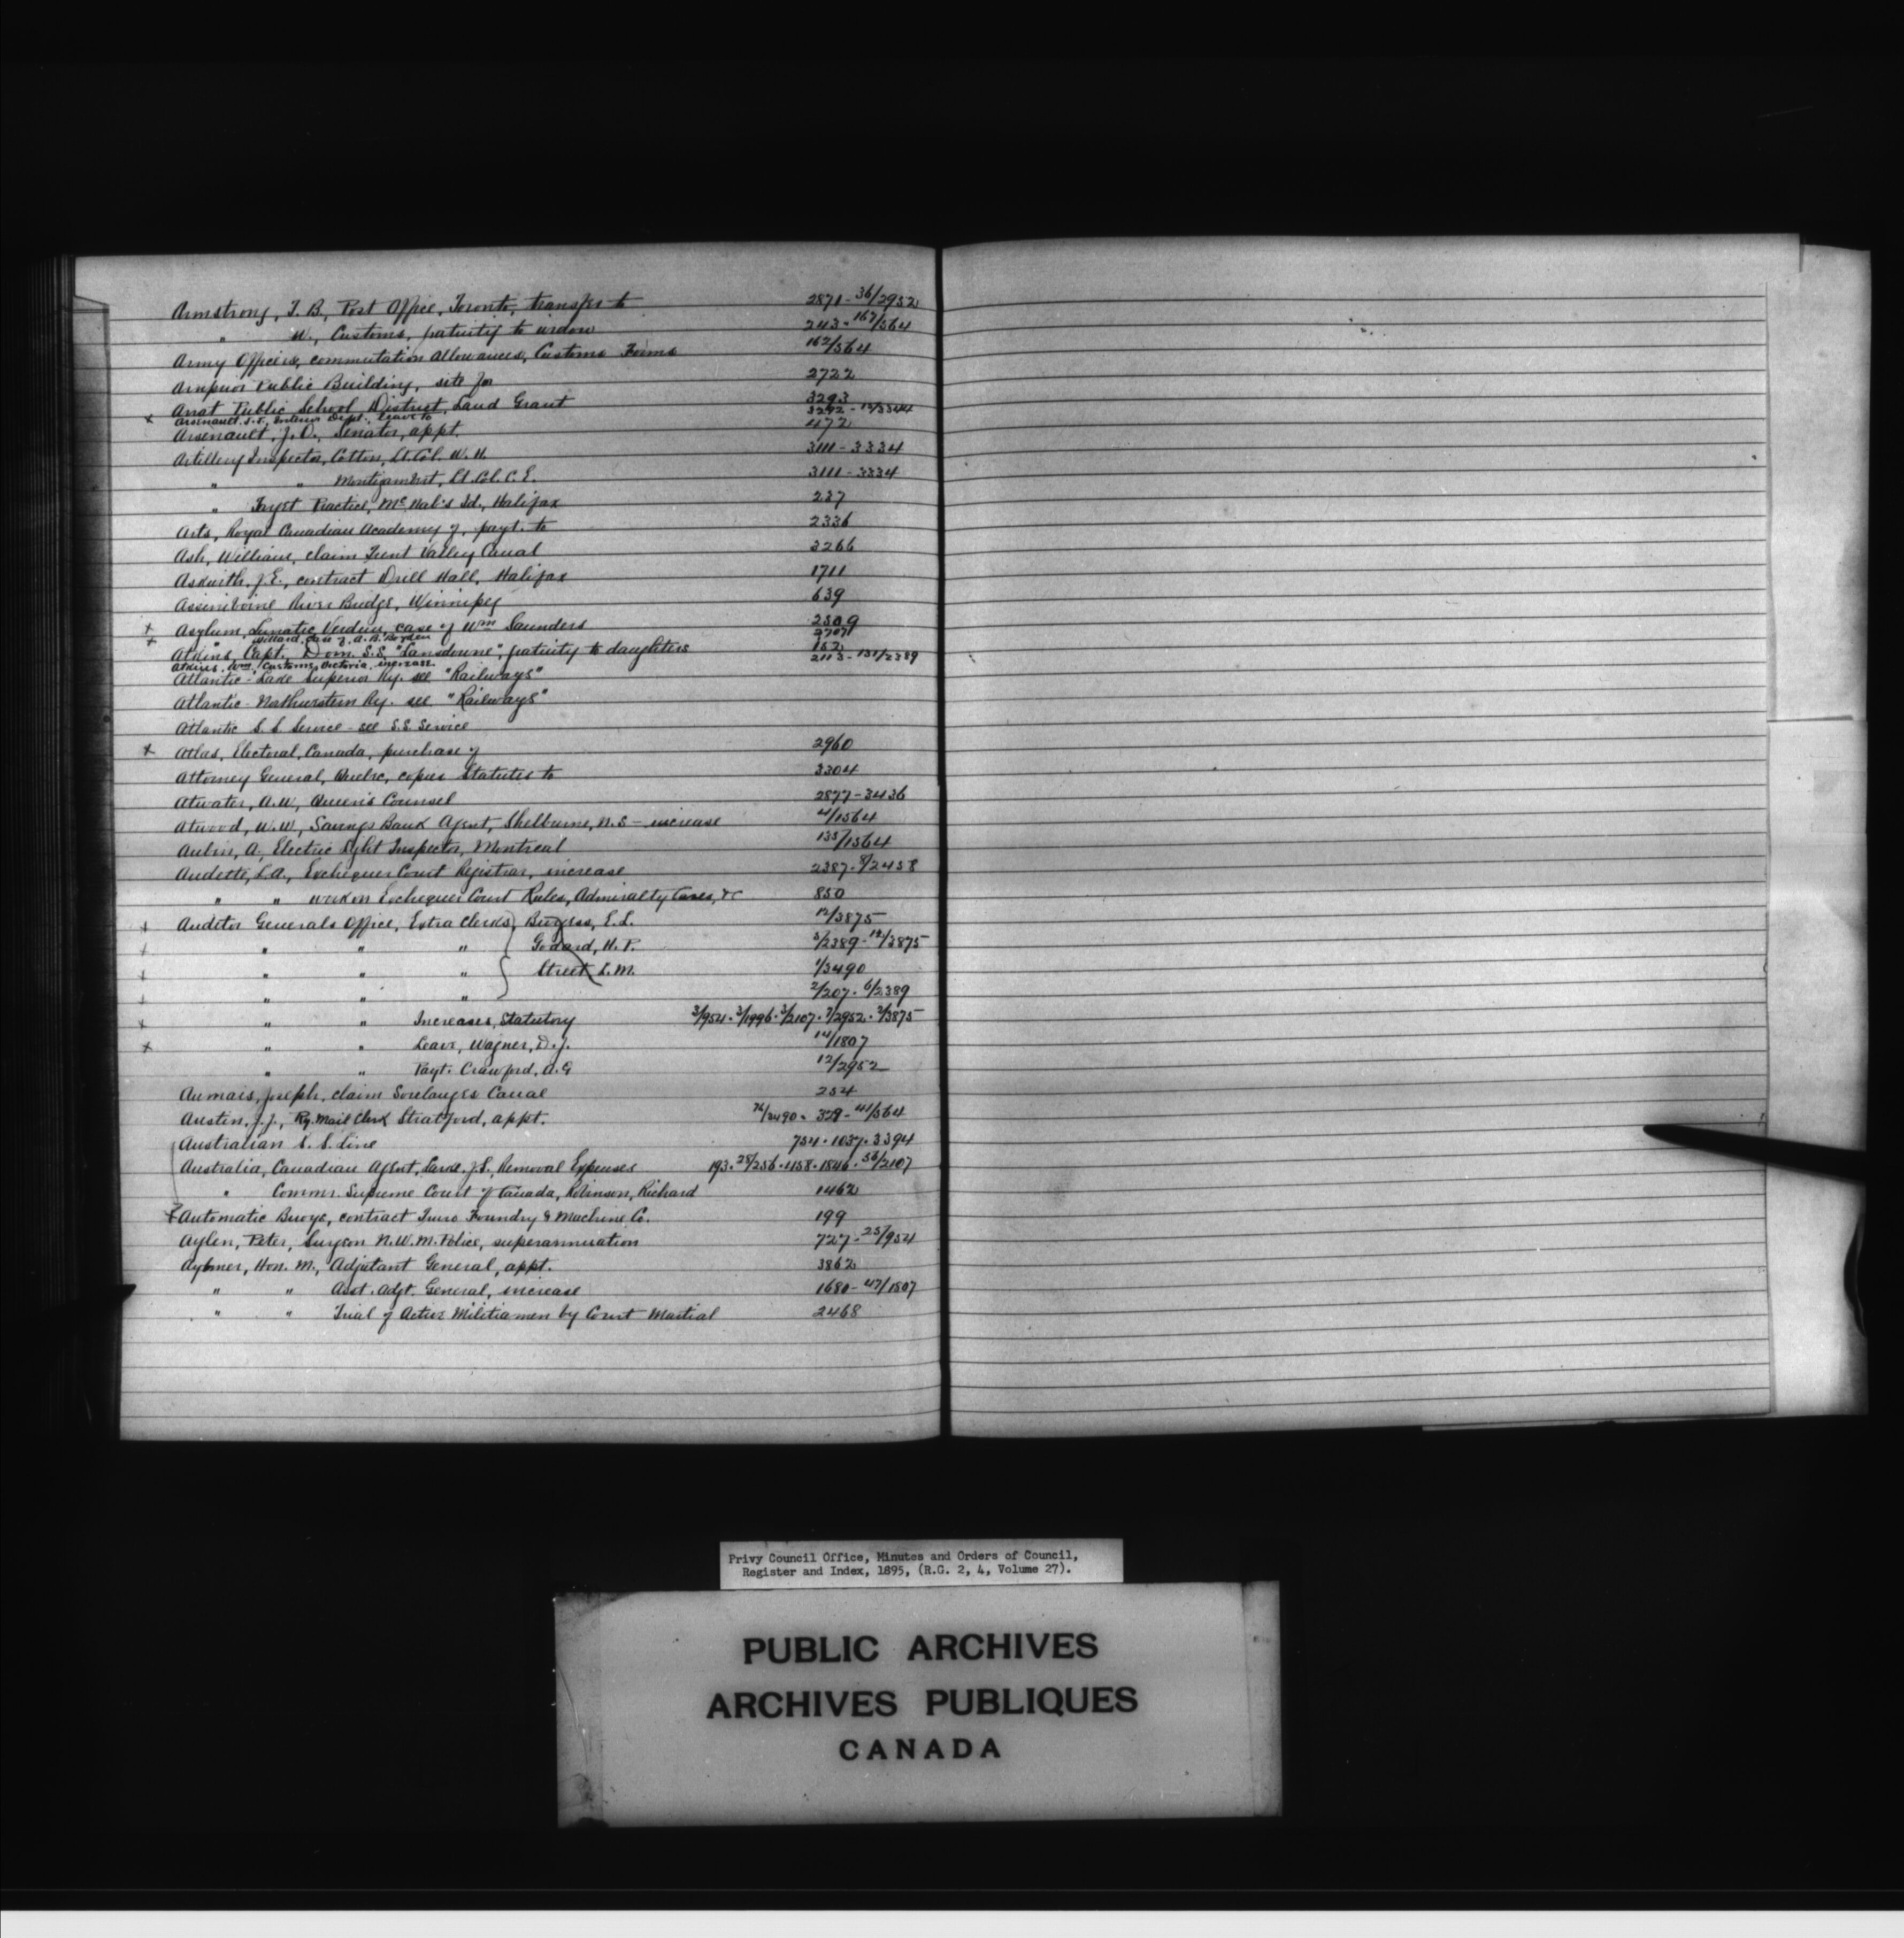 Armstrong, T. B., Post Office, Toronto, transfer to 2871 - 36/2952
" W., Customs, gratuity to widow 243 - 167/564
Army Officers, commutation allowances, Customs Forms 162/564
Arnprior Public Building, site for 2722
Arrat Public School District, Land Grant 3293
x Arsenault, Interior Dept., leave to 3292 - 12/3344
Arsenault, J. O., Senator, appt. 472
Artillery Inspector, Cotton, Lt. Col. W. H. 3111 - 3334
" " Montizambert, Lt. Col. C. E. 3111 - 3334
" Target Practice, McNab's Id., Halifax 237
Arts, Royal Canadian Academy of, payt. to 2336
Ash, William, claim Trent Valley Canal 3266
Askwith, J. E., contract Drill Hall, Halifax 1711
Assiniboine River Bridge, Winnipeg 639
x Asylum, Lunatic, Verdun, case of Wm Saunders 2309
x " Willard, case of, A. B. Borden 2707
Atkins, Capt., Dom. S.S. "Lansdowne", gratuity to daughters 162
Atkins, Wm, Customs, Victoria, increase 2113 - 131/2389
Atlantic - Lake Superior Ry. see "Railways"
Atlantic - Northwestern Ry. see "Railways"
Atlantic S. S. Service - see S.S. Service
x Atlas, Electoral, Canada, purchase of 2960
Attorney General, Quebec, copies Statutes to 3304
Atwater, A. W., Queen's Counsel 2877 - 3436
Atwood, W. W., Savings Bank Agent, Shelburne, N.S - increase 4/1564
Aubin, A., Electric Light Inspector, Montreal 135/1564
Audette, L. A., Exchequer Court Registrar, increase 2387 . 8/2458
" " work on Exchequer Court Rules, Admiralty Cases, &c 850
x Auditor Generals Office, Extra Clerks, Burgess, E. L. 12/3875
x " " " Godard, H. P. 3/2389 - 12/3875
x " " " Street, L. M. 1/3490
x " " " 2/207 . 6/2389
x " " Increases, Statutory 3/954 . 3/1996 . 3/2107 . 7/2952 . 2/3875
x " " Leave, Wagner, D. J. 14/1807
" " Payt. Crawford, A. G 12/2952
Aumais, Joseph, claim Soulanges Canal 254
Austen, J. J., Ry. Mail Clerk Stratford, appt. 74/2490 - 329 - 41/564
Australian S. S. Line 754 . 1037 . 3394
Australia, Canadian Agent, Larke, J. S., Removal Expenses 193 . 28/256 . 1158 . 1846 . 56/2107
" Commr. Supreme Court of Canada, Robinson, Richard 1462
x Automatic Buoys, contract Truro Foundry & Machine Co. 199
Aylen, Peter, Surgeon N.W.M. Police, superannuation 727 - 25/954
Aylmer, Hon. M., Adjutant General, appt. 3862
" " Asst. Adjt. General, increase 1680 - 47/1807
" " Trial of Active Militiamen by Court Martial 2468
Privy Council Office, Minutes and Orders of Council,
Register and Index, 1895, (R.G. 2, 4, Volume 27).
PUBLIC ARCHIVES
ARCHIVES PUBLIQUES
CANADA